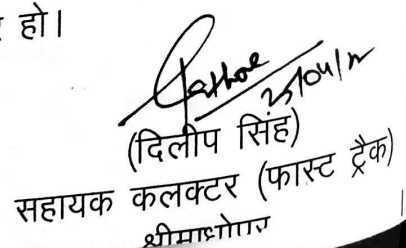 हो।
25/04/12
(दिलीप सिंह)
सहायक कलक्टर (फास्ट ट्रैक)
श्रीमाधोपुर